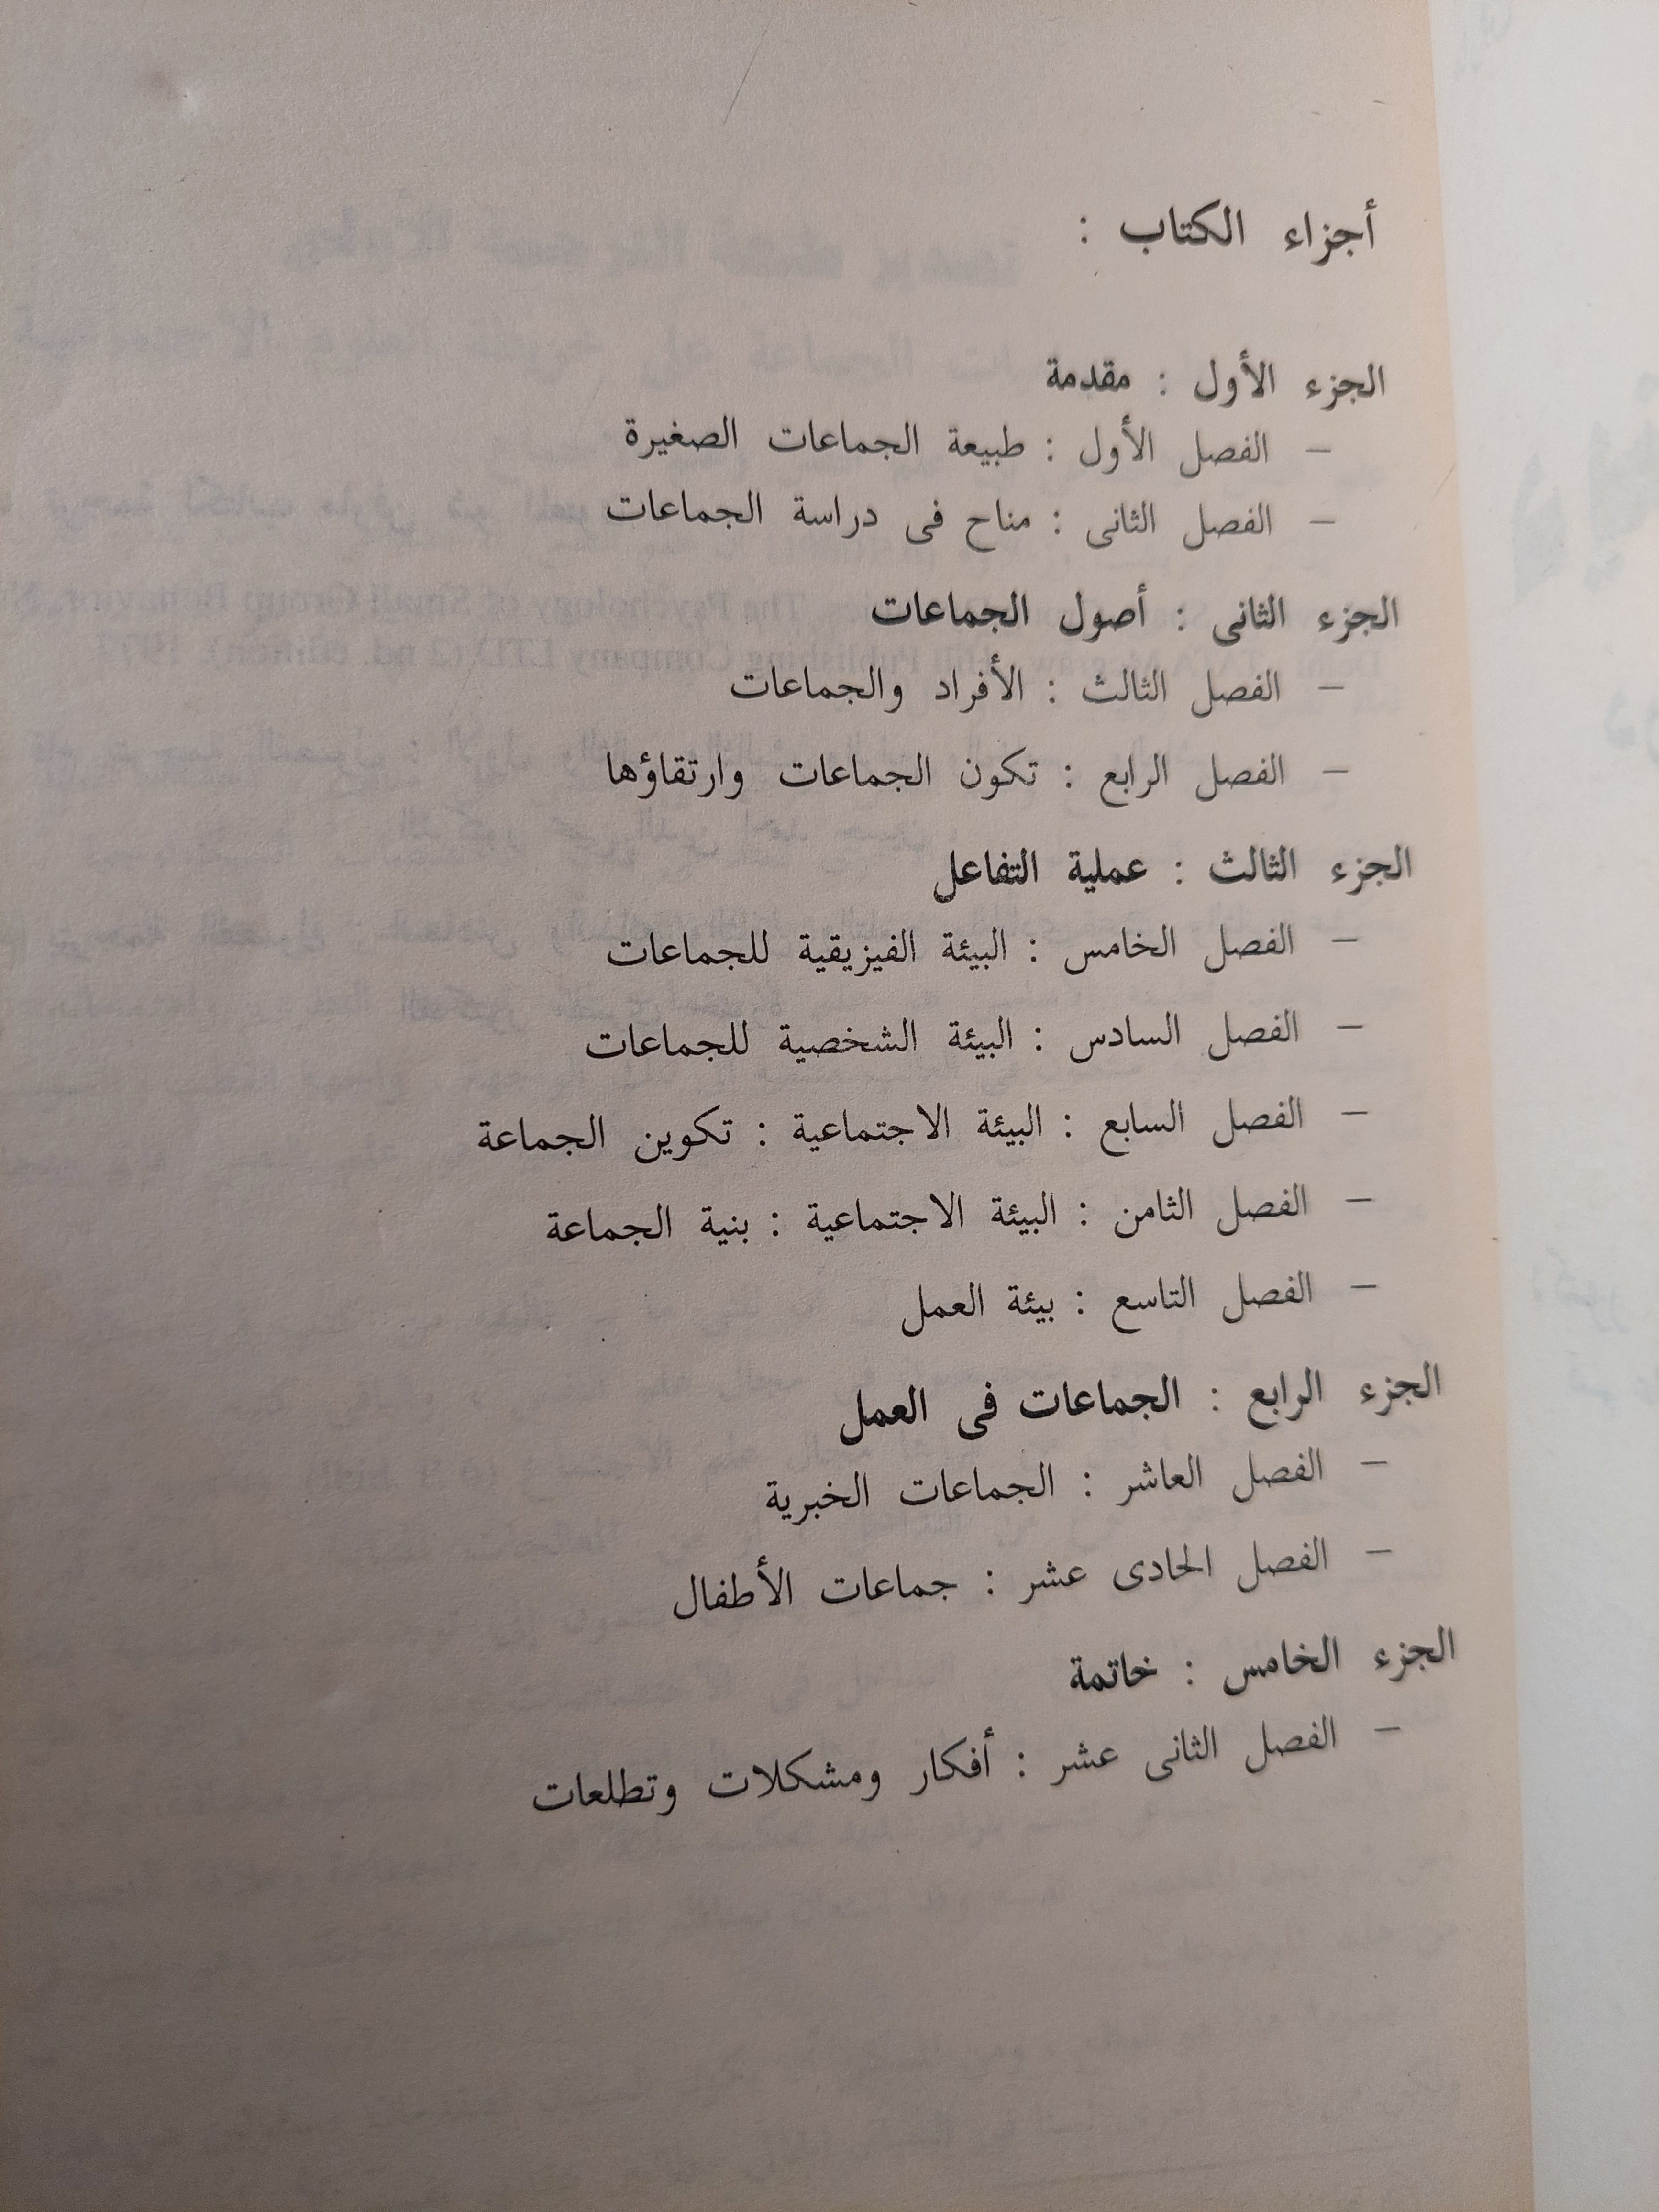 أجزاء الكتاب :
الجزء الأول : مقدمة
– الفصل الأول : طبيعة الجماعات الصغيرة
– الفصل الثانى : مناح فى دراسة الجماعات
الجزء الثانى : أصول الجماعات
– الفصل الثالث : الأفراد والجماعات
– الفصل الرابع : تكون الجماعات وارتقاؤها
الجزء الثالث : عملية التفاعل
– الفصل الخامس : البيئة الفيزيقية للجماعات
– الفصل السادس : البيئة الشخصية للجماعات
– الفصل السابع : البيئة الاجتماعية : تكوين الجماعة
– الفصل الثامن : البيئة الاجتماعية : بنية الجماعة
– الفصل التاسع : بيئة العمل
الجزء الرابع : الجماعات فى العمل
– الفصل العاشر : الجماعات الخبرية
– الفصل الحادى عشر : جماعات الأطفال
الجزء الخامس : خاتمة
– الفصل الثانى عشر : أفكار ومشكلات وتطلعات